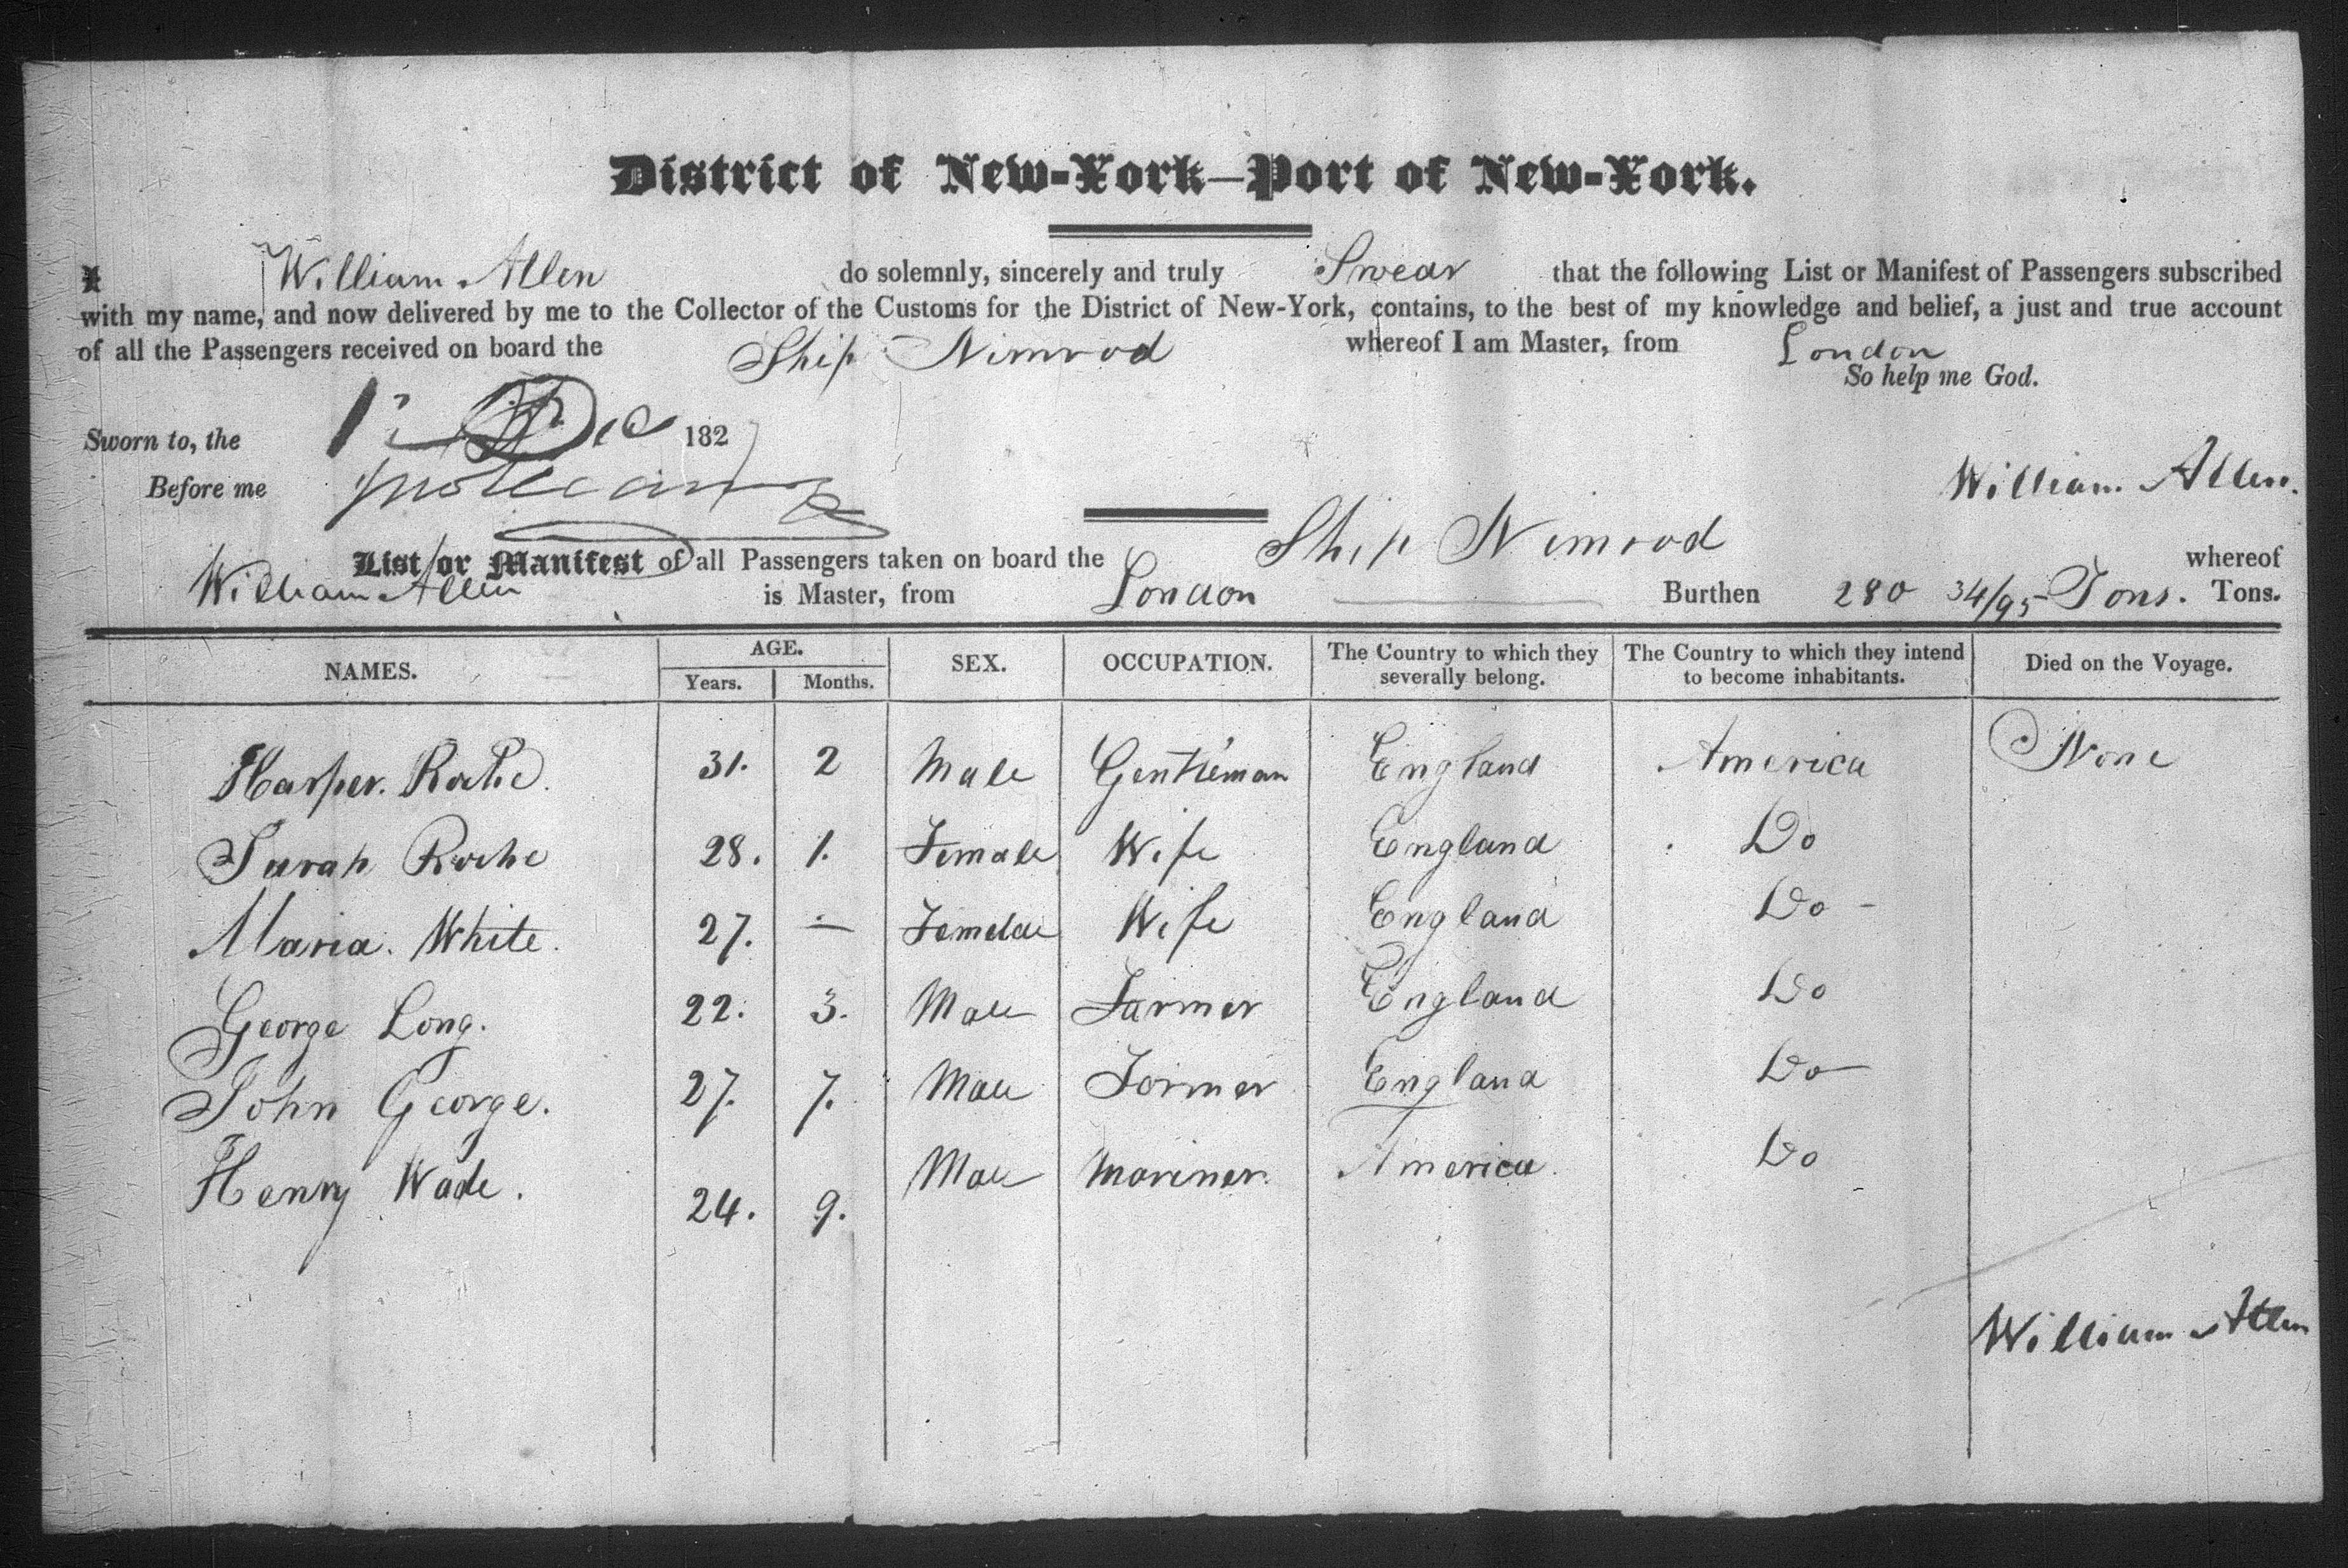 District of New-York—Port of New-York.
I William Allen do solemnly, sincerely and truly Swear that the following List or Manifest of Passengers subscribed
with my name, and now delivered by me to the Collector of the Customs for the District of New-York, contains, to the best of my knowledge and belief, a just and true account
of all the Passengers received on board the Ship Nimrod whereof I am Master, from London
So help me God.
Sworn to, the Dec 1827
Before me
William Allen.
List or Manifest of all Passengers taken on board the Ship Nimrod whereof
William Allen is Master, from London Burthen 280 34/95 Tons. Tons.
NAMES. AGE. SEX. OCCUPATION. The Country to which they severally belong. The Country to which they intend to become inhabitants. Died on the Voyage.
Years. Months.
Harper. Roche. 31. 2 Male Gentleman England America None
Sarah Roche 28. 1. Female Wife England Do
Maria. White. 27. — Female Wife England Do -
George Long. 22. 3. Male Farmer England Do
John George. 27. 7. Male Farmer England Do
Henry Wade. 24. 9. Male Mariner. America. Do
William Allen